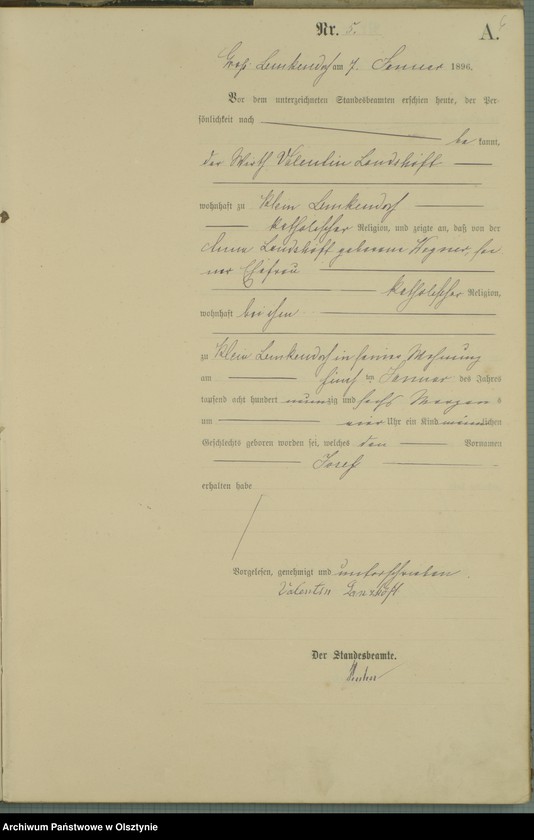 Nr. 5.
A.
Groß Lemkendorf am 7. Januar 1896.
Vor dem unterzeichneten Standesbeamten erschien heute, der Per-
sönlichkeit nach
be kannt,
der Wirth Valentin Landshöft
wohnhaft zu Klein Lemkendorf
katholischer Religion, und zeigte an, daß von der
Anna Landshöft geborene Wagner, sei
ner Ehefrau
katholischer Religion,
wohnhaft bei ihm
zu Klein Lemkendorf in seiner Wohnung
am fünf ten Januar des Jahres
tausend acht hundert neunzig und sechs Morgen s
um vier Uhr ein Kind männlichen
Geschlechts geboren worden sei, welches den Vornamen
Josef
erhalten habe
Vorgelesen, genehmigt und unterschrieben.
Valentin Landshöft
Der Standesbeamte.
Archiwum Państwowe w Olsztynie